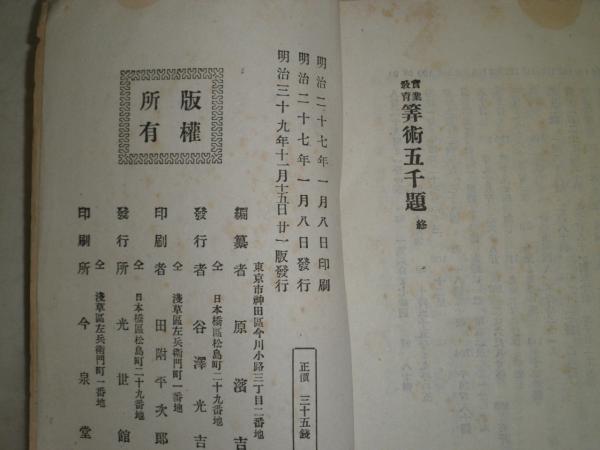 實業
敎育
筭術五千題 終
明治二十七年一月八日印刷
明治二十七年一月八日發行
明治三十九年十一月十五日廿一版發行
版權
所有
正價 三十五錢
東京市神田區今川小路三丁目二番地
編纂者 原濱吉
仝 日本橋區松島町二十九番地
發行者 谷澤光吉
仝 淺草區左兵衞門町一番地
印刷者 田附平次郎
仝 日本橋區松島町二十九番地
發行所 光世館
仝 淺草區左兵衞門町一番地
印刷所 今泉堂